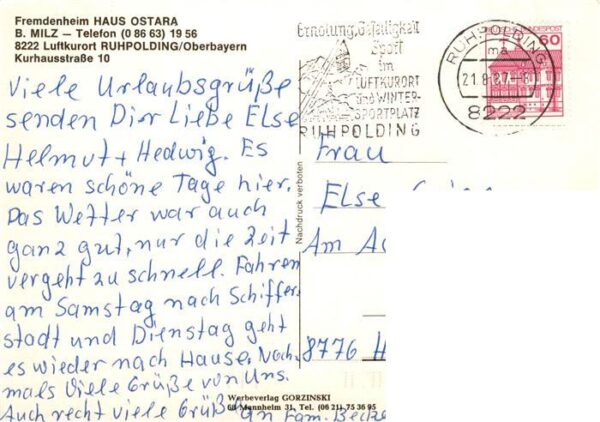 Fremdenheim HAUS OSTARA
B. MILZ — Telefon (0 86 63) 19 56
8222 Luftkurort RUHPOLDING/Oberbayern
Kurhausstraße 10
Viele Urlaubsgrüße
senden Dir Liebe Else
Helmut + Hedwig. Es
waren schöne Tage hier.
Das Wetter war auch
ganz gut, nur die Zeit
vergeht zu schnell. Fahren
am Samstag nach Schiffer
stadt und Dienstag geht
es wieder nach Hause. Noch
mals Viele Grüße von Uns.
Auch recht viele Grüße an Fam. Becke
Erholung, Geselligkeit
Sport
im
LUFTKURORT
und WINTER-
SPORTPLATZ
RUHPOLDING
RUHPOLDING
ma
21.8.
8222
BUNDESPOST
60
Nachdruck verboten
Frau
Else
Am
8776 H
Werbeverlag GORZINSKI
68 Mannheim 31, Tel. (06 21) 75 36 95